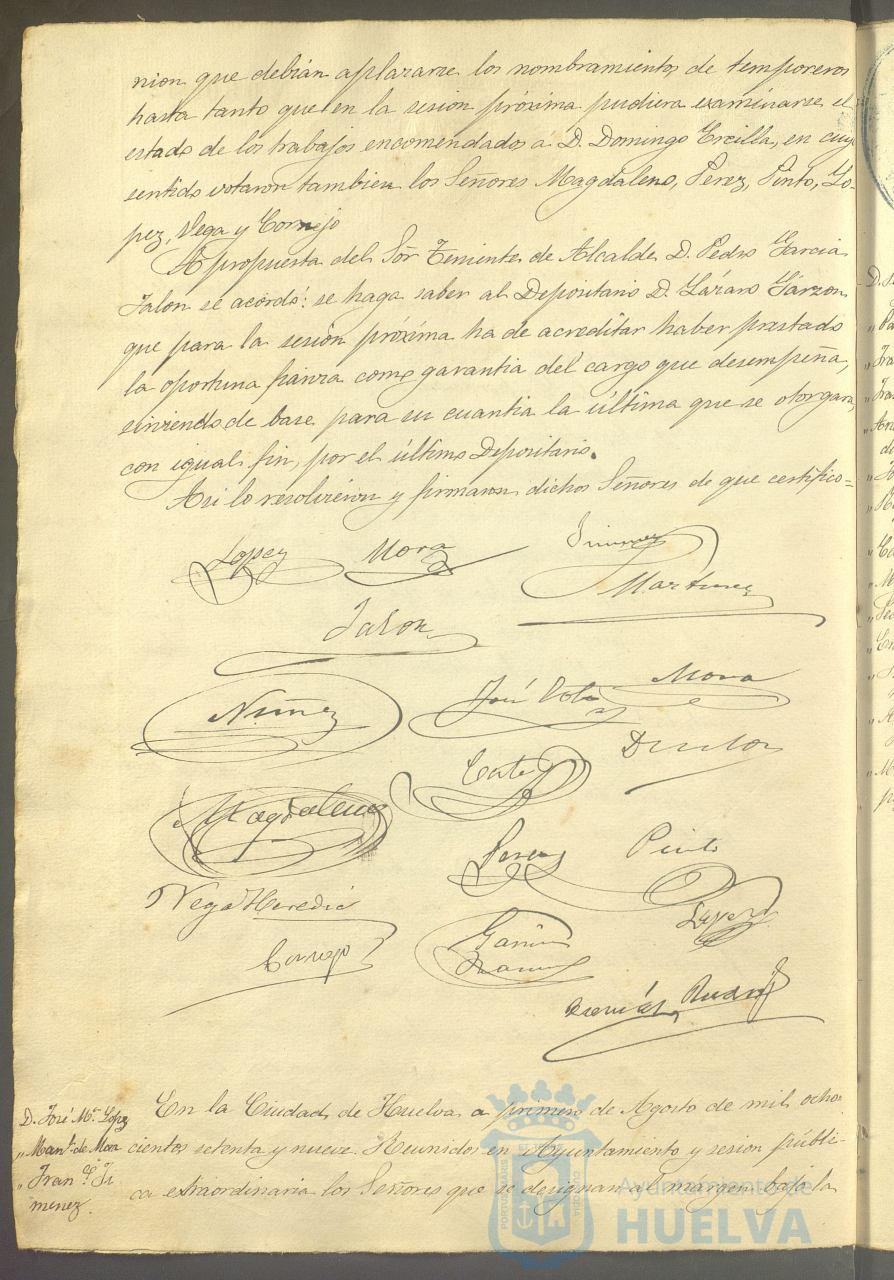 nion que debian aplazarse los nombramientos de temporeros
hasta tanto que en la sesion próxima pudiera examinarse el
estado de los trabajos encomendados a D. Domingo Ercilla, en cuyo
sentido votaron tambien los Señores Magdaleno, Perez, Pinto, Lo-
pez, Vega y Cornejo
A propuesta del Sor Teniente de Alcalde D. Pedro Garcia
Jalon se acordó: se haga saber al Depositario D. Lázaro Gárzon
que para la sesion próxima ha de acreditar haber prestado
la oportuna fianza como garantia del cargo que desempeña,
sirviendo de base para su cuantia la última que se otorgara
con igual fin, por el último Depositario.
Asi lo resolvieron y firmaron dichos Señores de que certifico=
Lopez Mora Jimenez
Martinez
Jalon
Nuñez José Mora
Cortes
Magdaleno
Perez Pinto
Vega Heredia
Lopez
Cornejo Garcia
Ramos
D. José Mª Lopez
„ Manl. de Mora
„ Franco Ji
menez.
En la Ciudad de Huelva a primero de Agosto de mil ocho
cientos setenta y nueve. Reunidos en Ayuntamiento y sesion públi-
ca extraordinaria los Señores que se designan al márgen bajo la
Ayuntamiento de
HUELVA